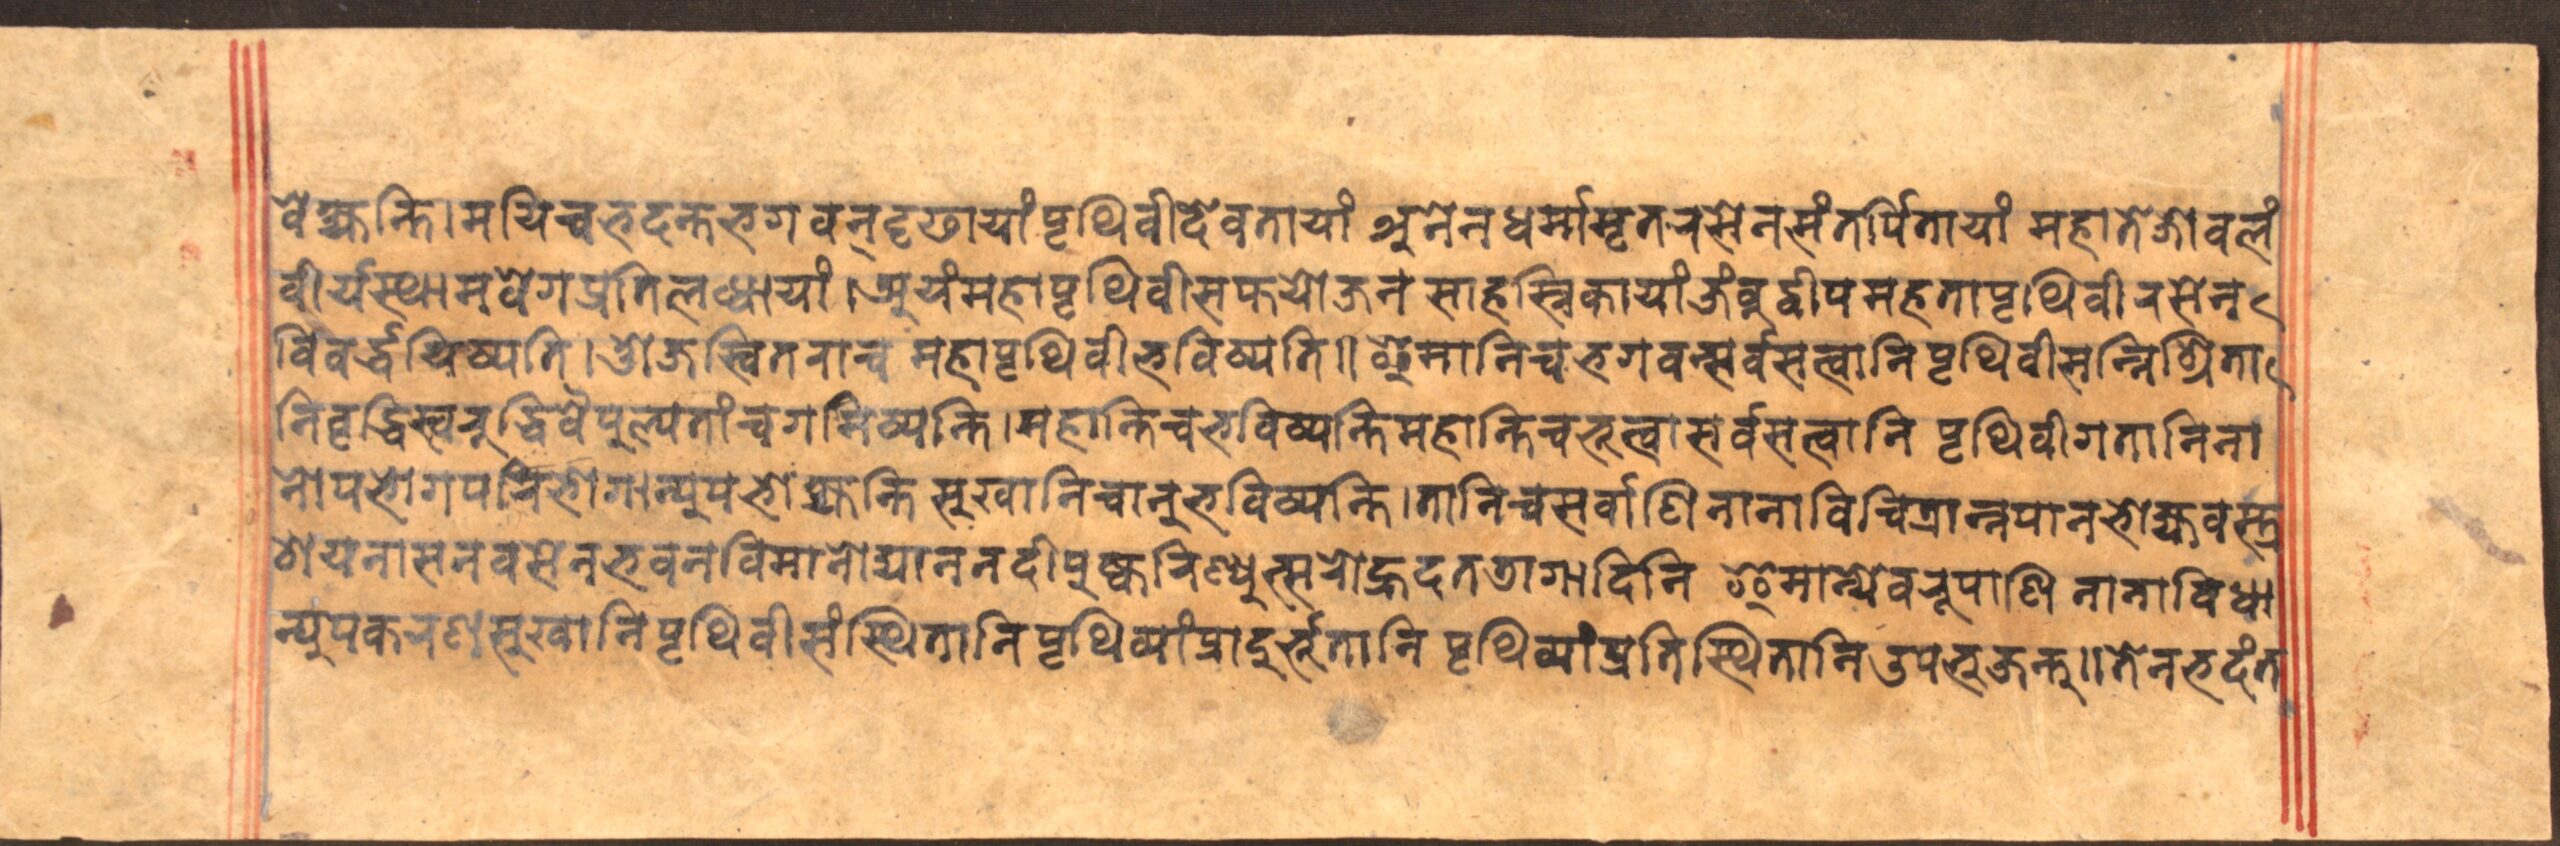 वेक्ष्यन्ति।मयिच्वभदन्तभगवन्दृढायांपृथिवीदेवतायां अनेनधर्मामृतरसेनसंतर्पितायां महातेजोवलं
वीर्यस्थामवेगप्रतिलब्धायां।अयंमहापृथिवीसप्तयोजन साहस्रिकायांजंवुद्वीपमहतापृथिवीरसेन
विवर्द्धयिष्यति।ओजस्वितराच महापृथिवीभविष्यति॥इमानिचभगवन्सर्वसत्वानिपृथिवीसन्निश्रिता
निवृद्धिस्वरुद्धिवैपुल्यतांचगमिष्यन्ति।महान्तिचभविष्यन्तिमहान्तिचभूत्वासर्वसत्वानि पृथिवीगतानिना
नोपभोगपरिभोगान्युपभोक्ष्यन्ति सुखानिचानुभविष्यन्ति।तानिचसर्वाणिनानाविचित्रान्नपानभोक्ष्यवस्त्र
शयनासनवसेनभवनविमानोद्याननदीपुष्करिण्युत्सरोह्रदतडागादिनि इमान्येवरूपाणि नानाविधा
न्युपकरणसुखानिपृथिवीसंस्थितानिपृथिव्यांप्रादुर्भूतानि पृथिव्यांप्रतिस्थितानिउपभुजन्तु॥तेनभदंत